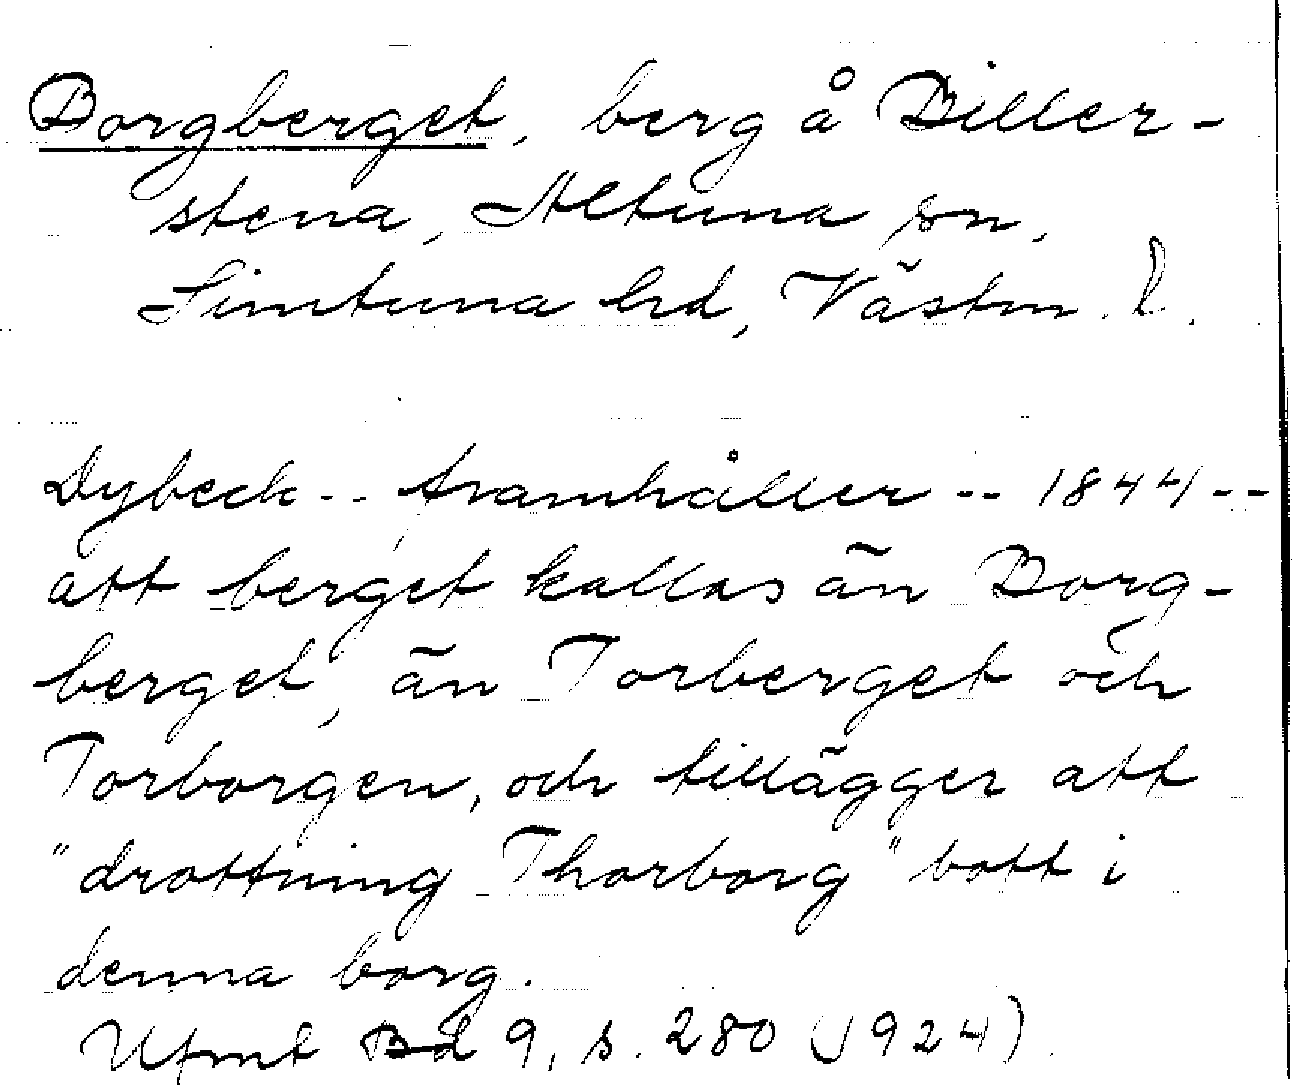 Borgberget, berg å Biller-
stena, Altuna sn,
Simtuna hd, Västm. l.
Dybeck -- framhåller -- 1844 --
att berget kallas än Borg-
berget, än Torberget och
Torborgen, och tillägger att
"drottning Thorborg" bott i
denna borg.
Ufmt Bd 9, s. 280 (1924)